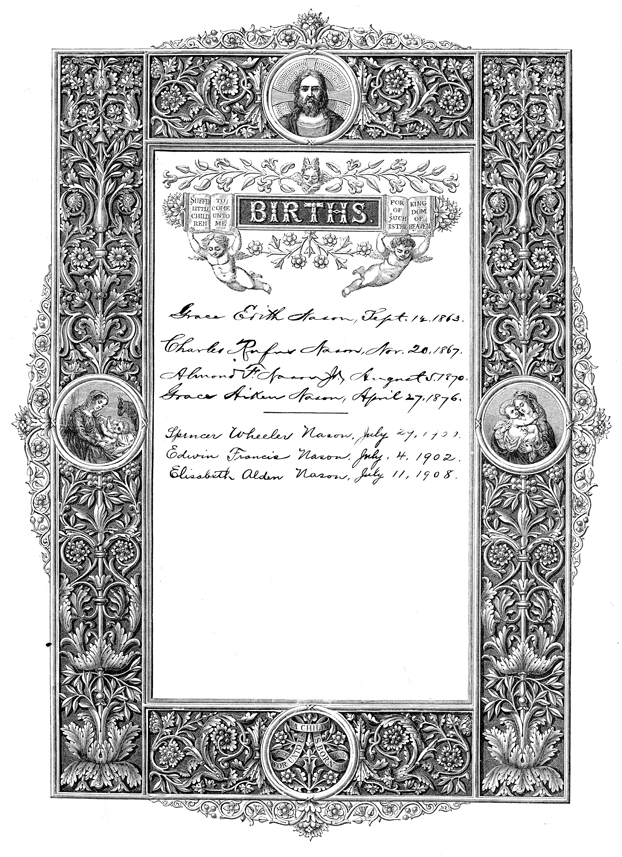 SUFFER LITTLE CHILDREN
TO COME UNTO ME
FOR OF SUCH IS THE
KINGDOM OF HEAVEN
BIRTHS.
Grace Edith Nason, Sept. 14. 1863.
Charles Rufus Nason, Nov. 20, 1867.
Almond F Nason Jr, August 5. 1870.
Grace Aiken Nason, April 27, 1876.
Spencer Wheeler Nason, July 27,
Edwin Francis Nason, July. 4. 1902.
Elisabeth Alden Nason, July 11, 1908.
A CHILD
IS GIVEN